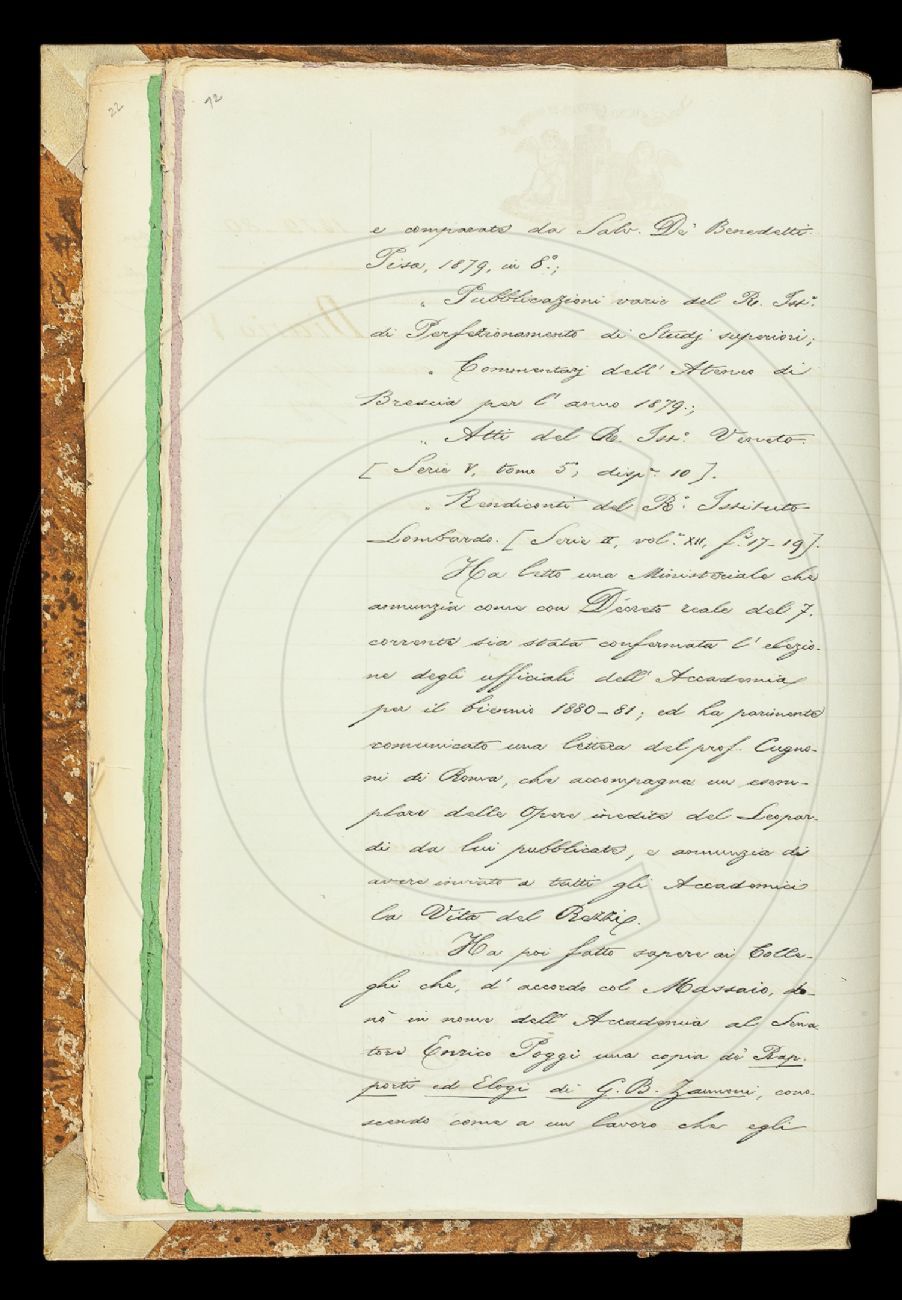 22
12
e comparate da Salv. De' Benedetti.
Pisa, 1879, in 8.°;
" Pubblicazioni varie del R. Ist.°
di Perfezionamento di Studj superiori;
" Commentarj dell' Ateneo di
Brescia per l' anno 1879.;
" Atti del R. Ist.° Veneto.
[Serie V, tomo 5°, disp.ª 10].
" Rendiconti del R.° Istituto
Lombardo. [Serie II, vol.° XII, f.i 17-19].
Ha letto una Ministeriale che
annunzia come con Decreto reale del 7.
corrente sia stata confermata l' elezio-
ne degli ufficiali dell' Accademia
per il biennio 1880-81; ed ha parimente
comunicato una lettera del prof. Cugno-
ni di Roma, che accompagna un esem-
plare delle Opere inedite del Leopar-
di da lui pubblicate, e annunzia di
avere inviato a tutti gli Accademici
la Vita del Rezzi.
Ha poi fatto sapere ai Colle-
ghi che, d' accordo col Massaio, do-
nò in nome dell' Accademia al Sena-
tore Enrico Poggi una copia de' Rap-
porti ed Elogi di G. B. Zannoni, cono-
scendo come a un lavoro che egli